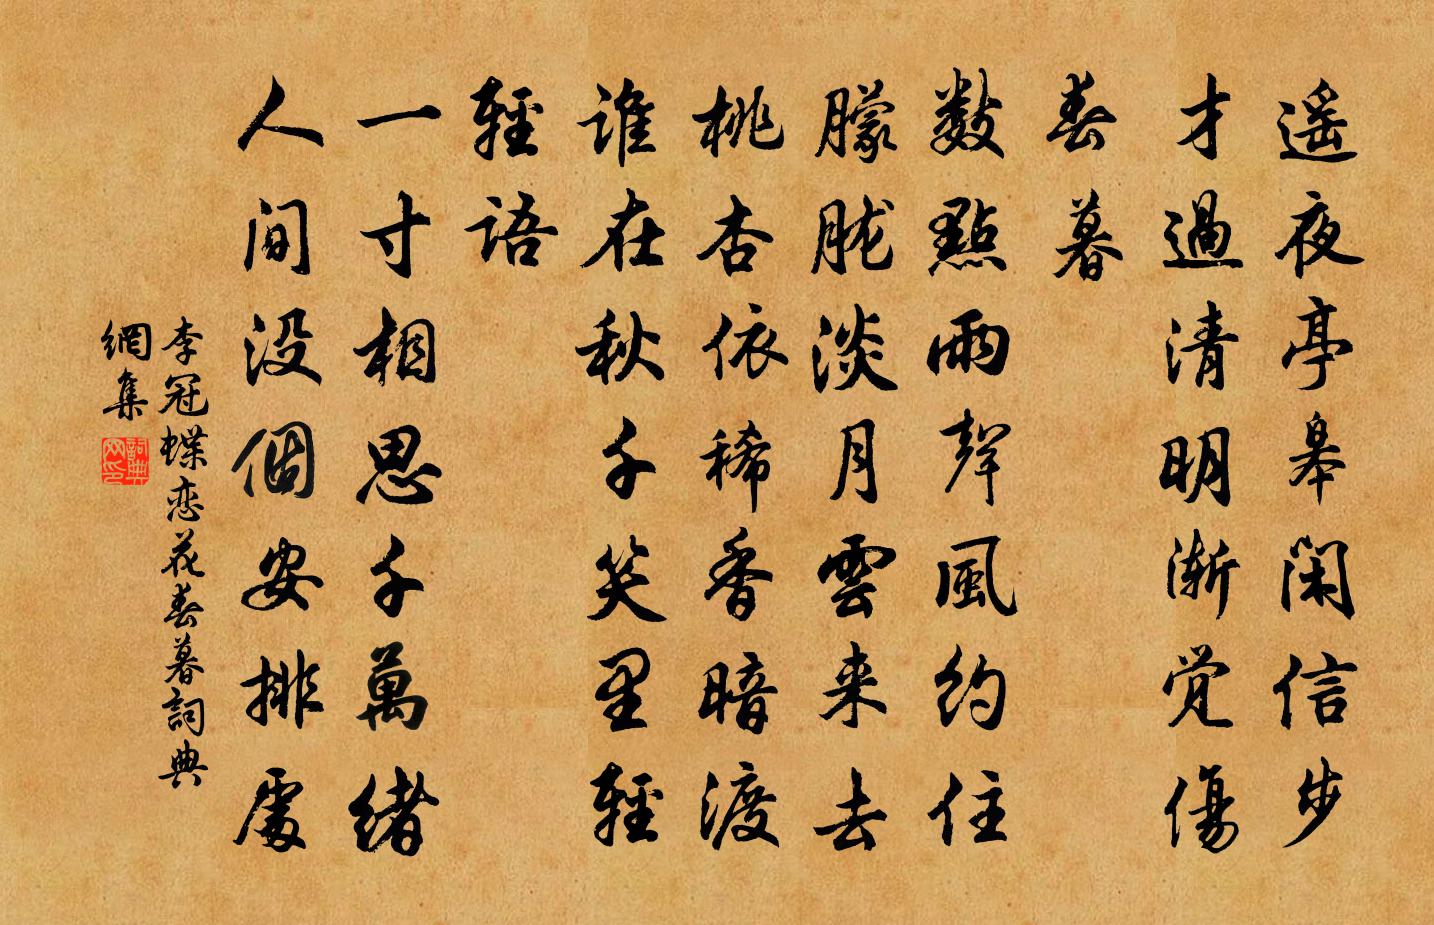 遥夜亭皋閑信步
才過清明漸覺傷
春暮
數點雨聲風約住
朦朧淡月雲来去
桃杏依稀香暗渡
誰在秋千笑里輕
輕語
一寸相思千萬緒
人間没個安排處
李冠蝶恋花春暮詞典
網集
詞典
网印